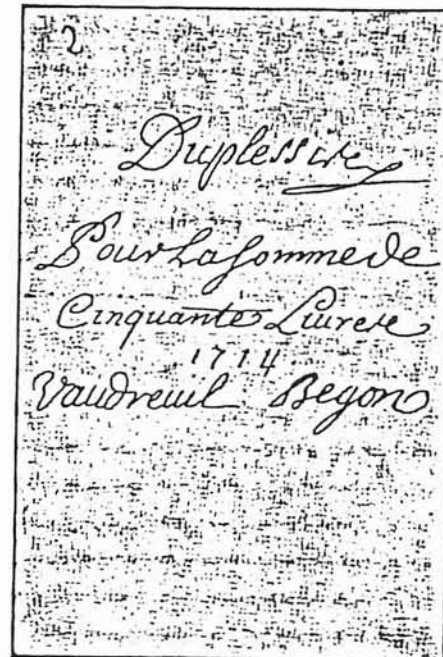 2
Duplessis
Pour La Somme de
Cinquante Livres
1714
Vaudreuil Begon